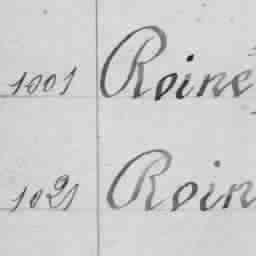 1001 Roine
1021 Roin